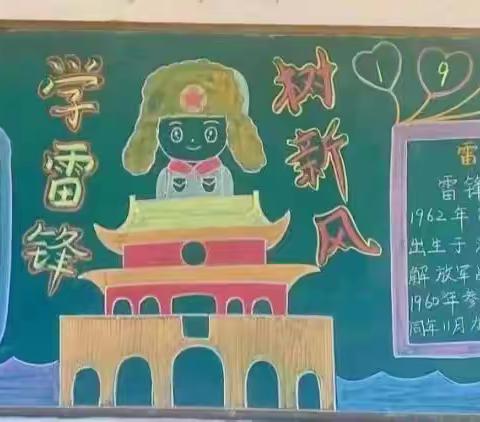 学雷锋
树新风
1 9
雷
雷锋
1962年
出生于
解放军
1960年参
同年11月